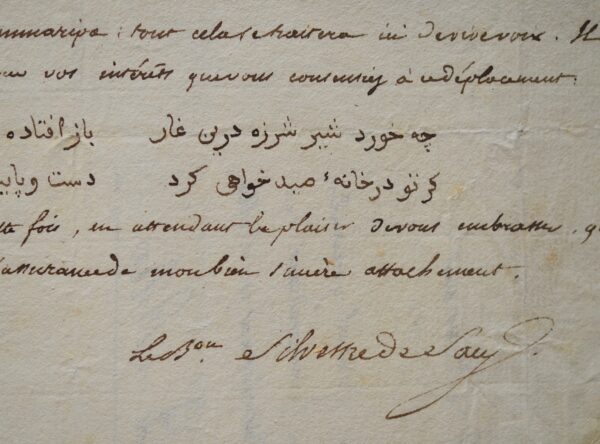 ummaripa : tout cela se traitera ici de vive voix. Il
vos intérêts que vous consentiez à ce déplacement :
چه خورد شیر شرزه دربن غار باز افتاده
کر تو در خانهٔ صید خواهی کرد دست و پای
tte fois, en attendant le plaisir de vous embrasser, q
l'assurance de mon bien sincère attachement.
Le Bon Silvestre de Sacy.